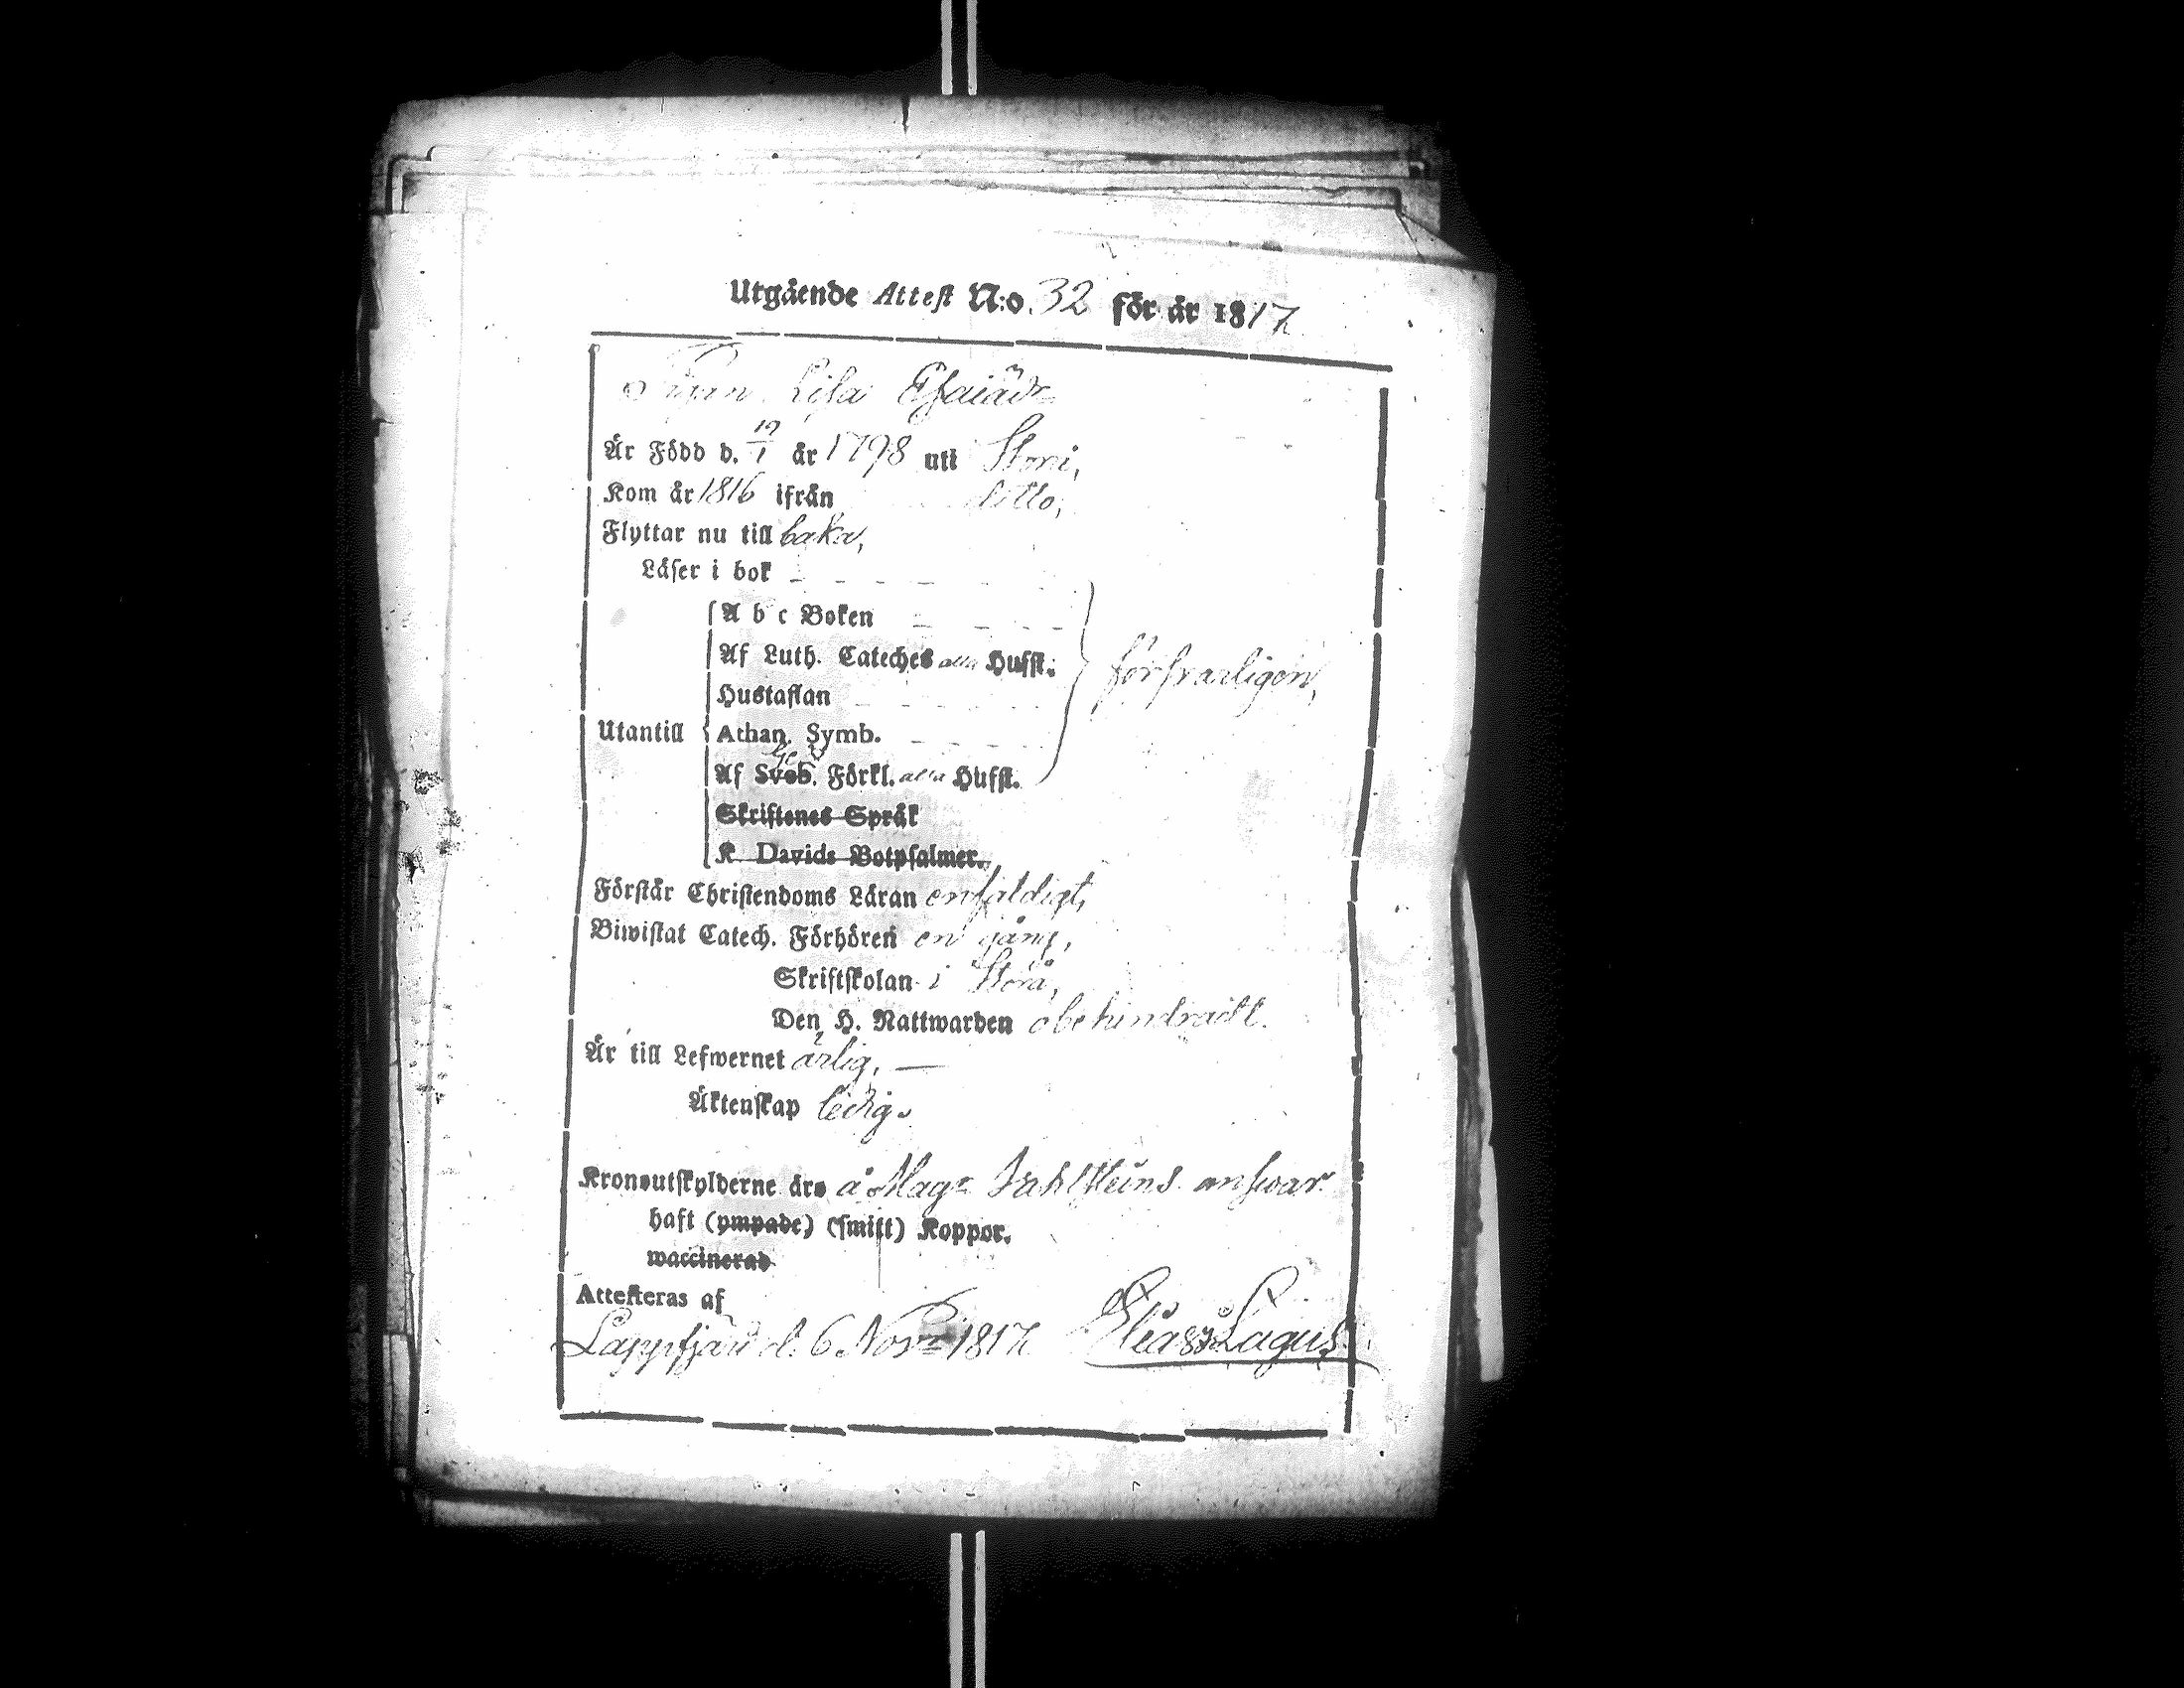 Utgående Attest N:o 32 för år 1817
Pigan Lisa Esaiäd:r
Är Född d. 19/1 år 1798 uti Storå,
Kom år 1816 ifrån ditto,
Flyttar nu till baka,
Läser i bok
A b c Boken
Af Luth. Cateches alla Hufst. försvarligen,
Hustaflan
Utantill Athan. Symb.
Af Sveb. Förkl. alla Hufst.
Skriftenes Språk
K. Davids Botpsalmer.
Förstår Christendoms Läran enfaldigt,
Biwistat Catech. Förhören en gång,
Skriftskolan i Storå,
Den H. Nattwarden obehindradt.
Är till Lefwernet ärlig, —
Äktenskap ledig.
Kronoutskylderne äro å Mag:r answar
haft (ympade) (smitt) Koppor.
waccinerad
Attesteras af
Lappfjärd d. 6 Nov:r 1817. Elias Lagus